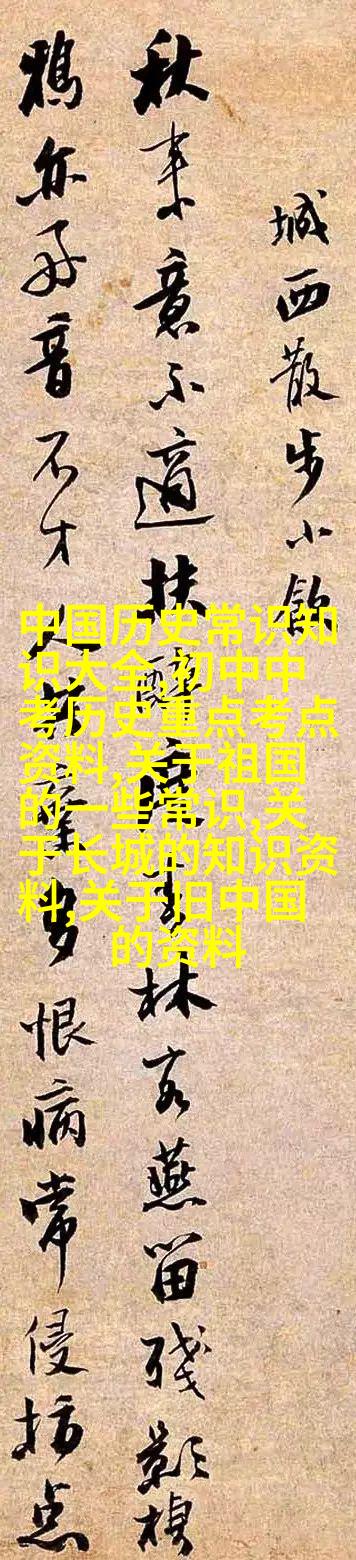 城西散步小飲
秋来意不適扶醉林客燕留殘影棲
鴉亦好音不才恨病常侵
中国历史常识知
识大全,初中中
考历史重点考点
资料,关于祖国
的一些常识,关
于长城的知识资
料,关于旧中国
的资料